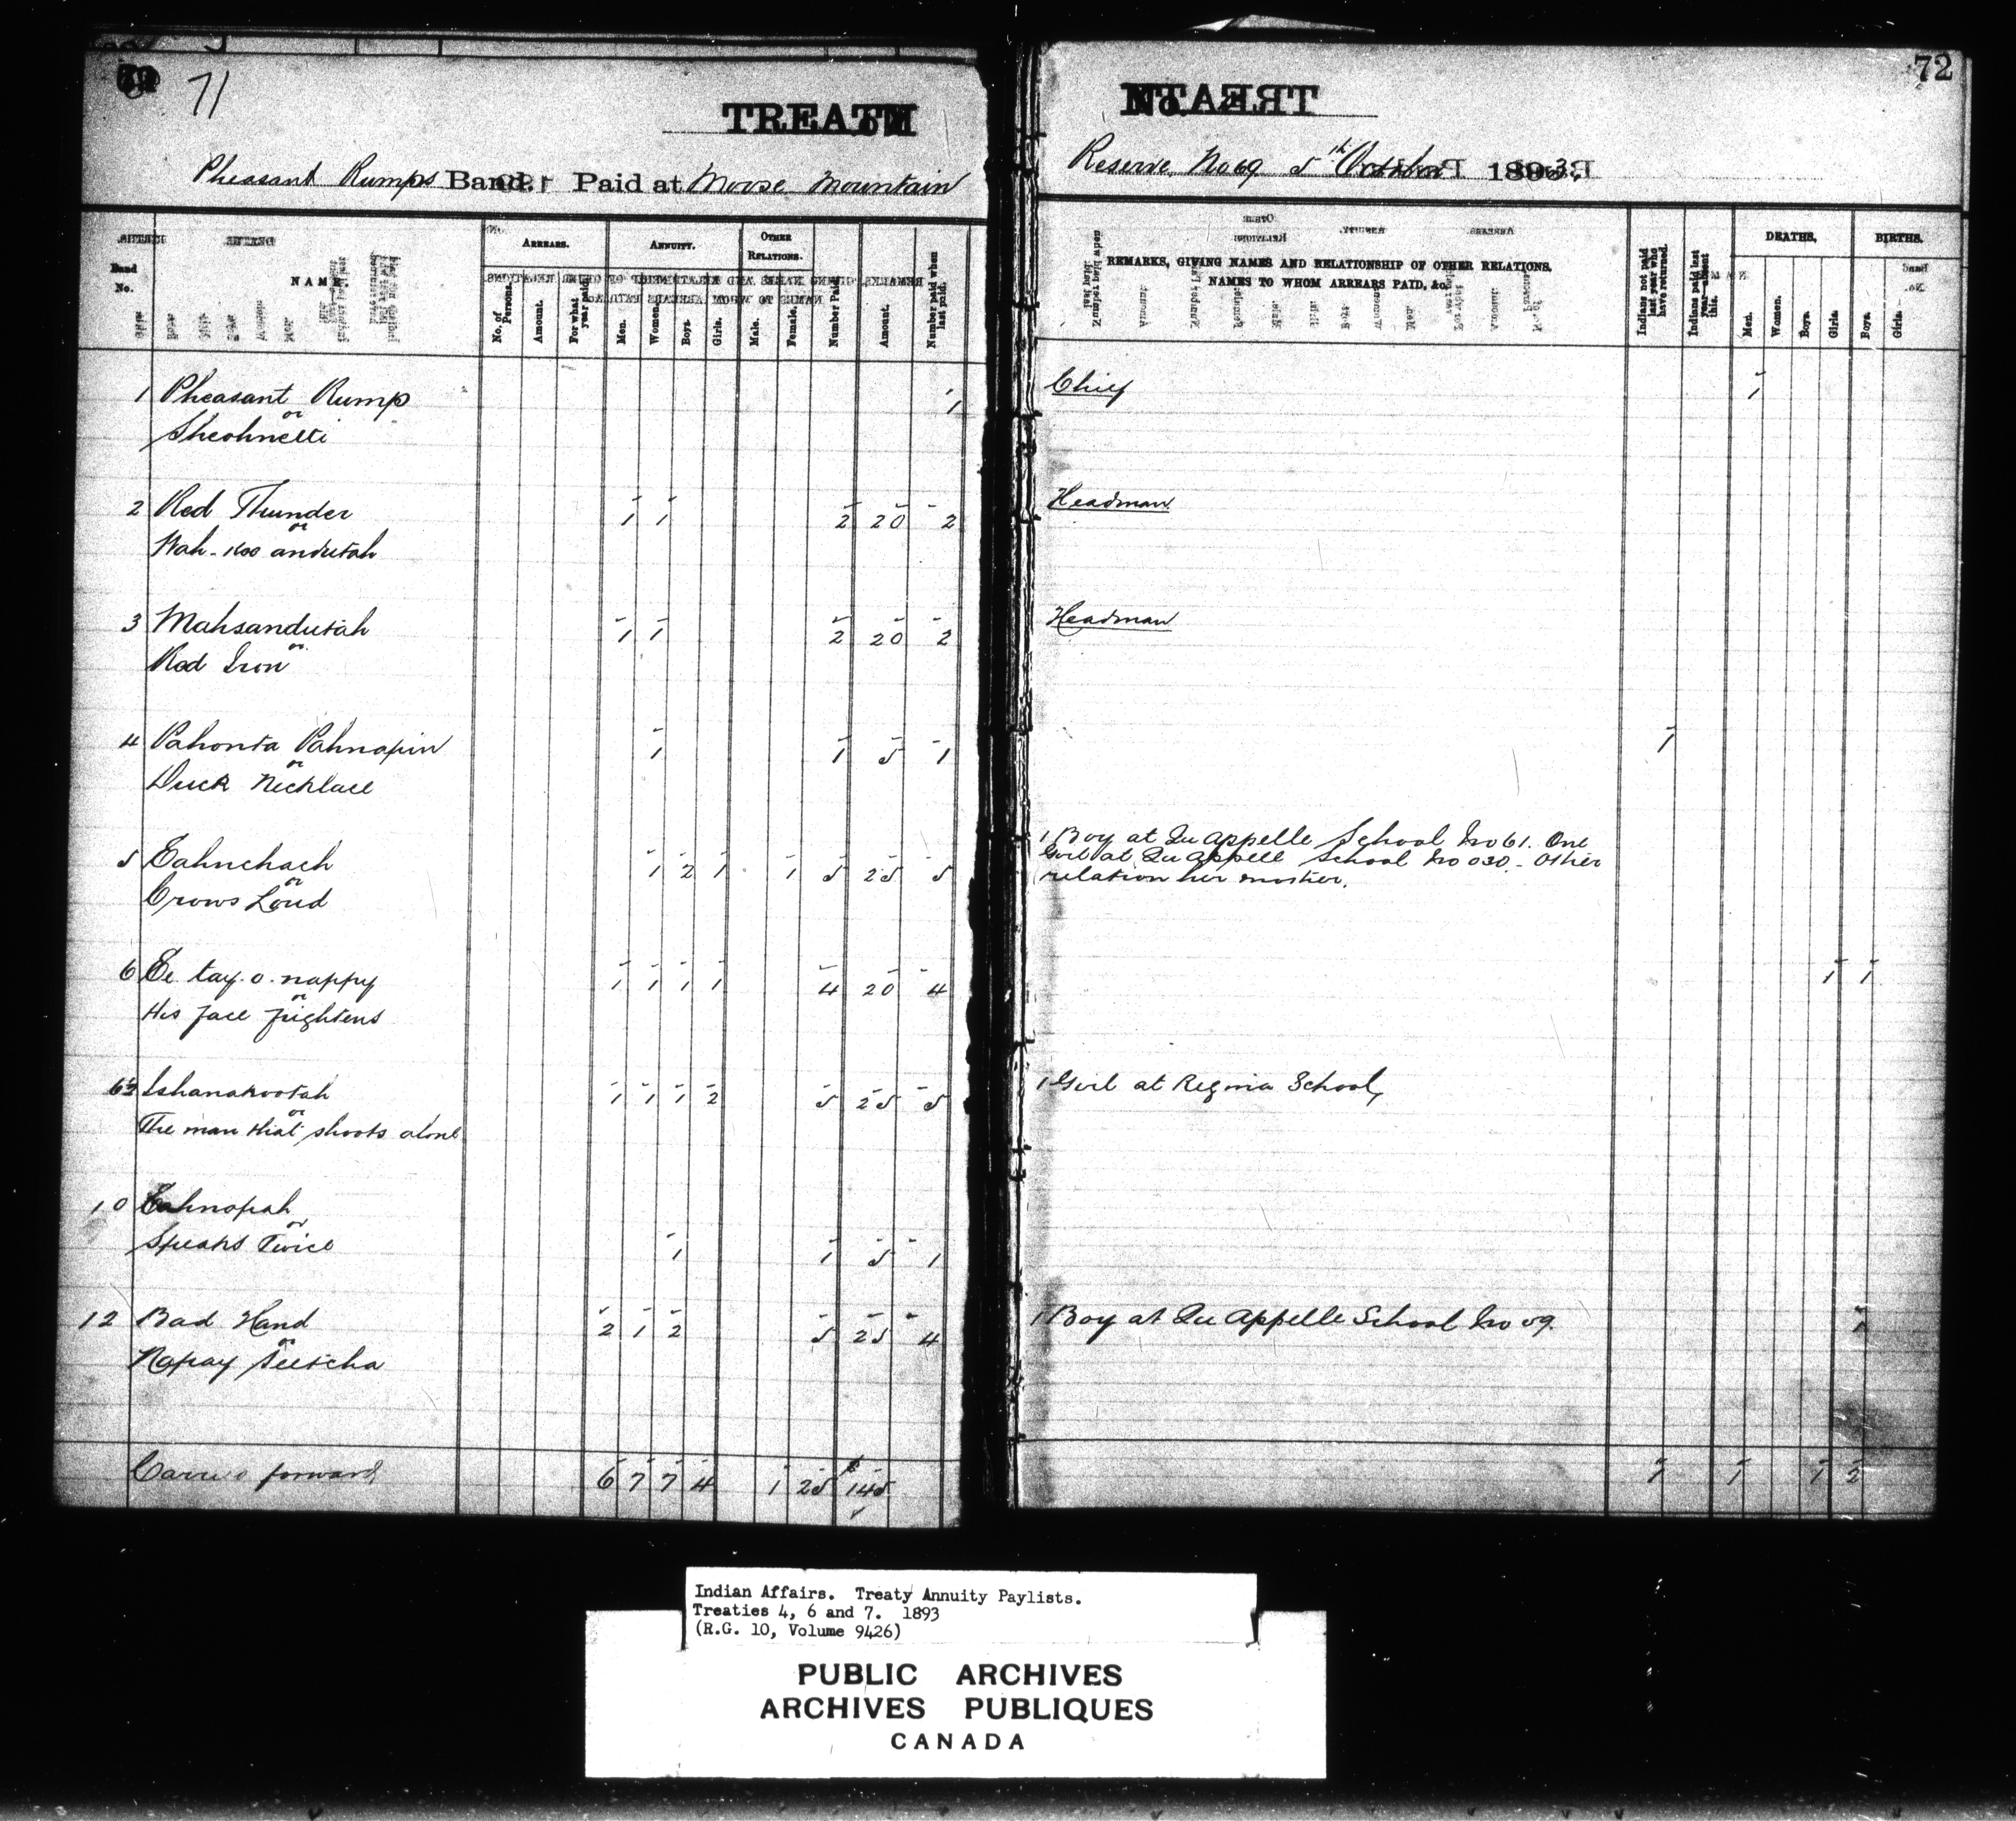 71
72
TREATY
No. 4
Pheasant Rumps Band. Paid at Moose Mountain
Reserve No 69 5th October 1893.
Band No.
NAME
ARREARS.
No. of Persons.
Amount.
For what year paid.
ANNUITY.
Men.
Women.
Boys.
Girls.
OTHER RELATIONS.
Male.
Female.
Number Paid.
Amount.
Number paid when last paid.
REMARKS, GIVING NAMES AND RELATIONSHIP OF OTHER RELATIONS,
NAMES TO WHOM ARREARS PAID, &c.
Indians not paid last year who have returned.
Indians paid last year—absent this.
DEATHS.
Men.
Women.
Boys.
Girls.
BIRTHS.
Boys.
Girls.
1 Pheasant Rump 1 Chief 1
or
Sheohnetti
2 Red Thunder 1 1 2 20 2 Headman
or
Wah-koo andutah
3 Mahsandutah 1 1 2 20 2 Headman
or
Red Iron
4 Pahonta Pahnapin 1 1 5 1 1
or
Duck Necklace
5 Eahnchach 1 2 1 1 5 25 5
or
Crows Loud
1 Boy at Qu Appelle School No 61. One
Girl at Qu Appell School No 030 - Other
relation her mother.
6 Ee tay. o. nappy 1 1 1 1 4 20 4 1 1
or
His face frightens
Ishanakootah 1 1 1 2 5 25 5 1 Girl at Regina School,
or
The man that shoots alone
10 Eahnopah
or
Speaks Twice 1 1 5 1
12 Bad Hand 2 1 2 5 25 4 1 Boy at Qu Appelle School No 59. 1
or
Napay Seetcha
Carried forward 6 7 7 4 1 25 145 1 1 1 2
Indian Affairs. Treaty Annuity Paylists.
Treaties 4, 6 and 7. 1893
(R.G. 10, Volume 9426)
PUBLIC ARCHIVES
ARCHIVES PUBLIQUES
CANADA